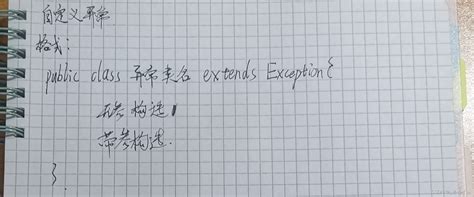 自定义异常
格式:
public class 异常类名 extends Exception{
无参构造
带参构造.
}